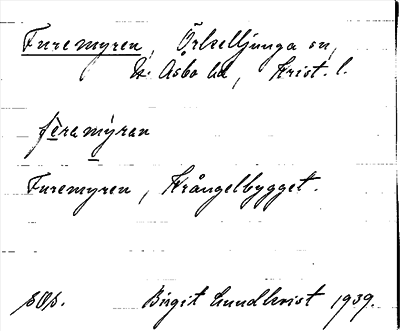 Furemyren, Örkelljunga sn,
N. Åsbo hd, Krist. l.
fèramýran
Furemyren, Krångelbygget.
sOp. Birgit Lundkvist 1939.